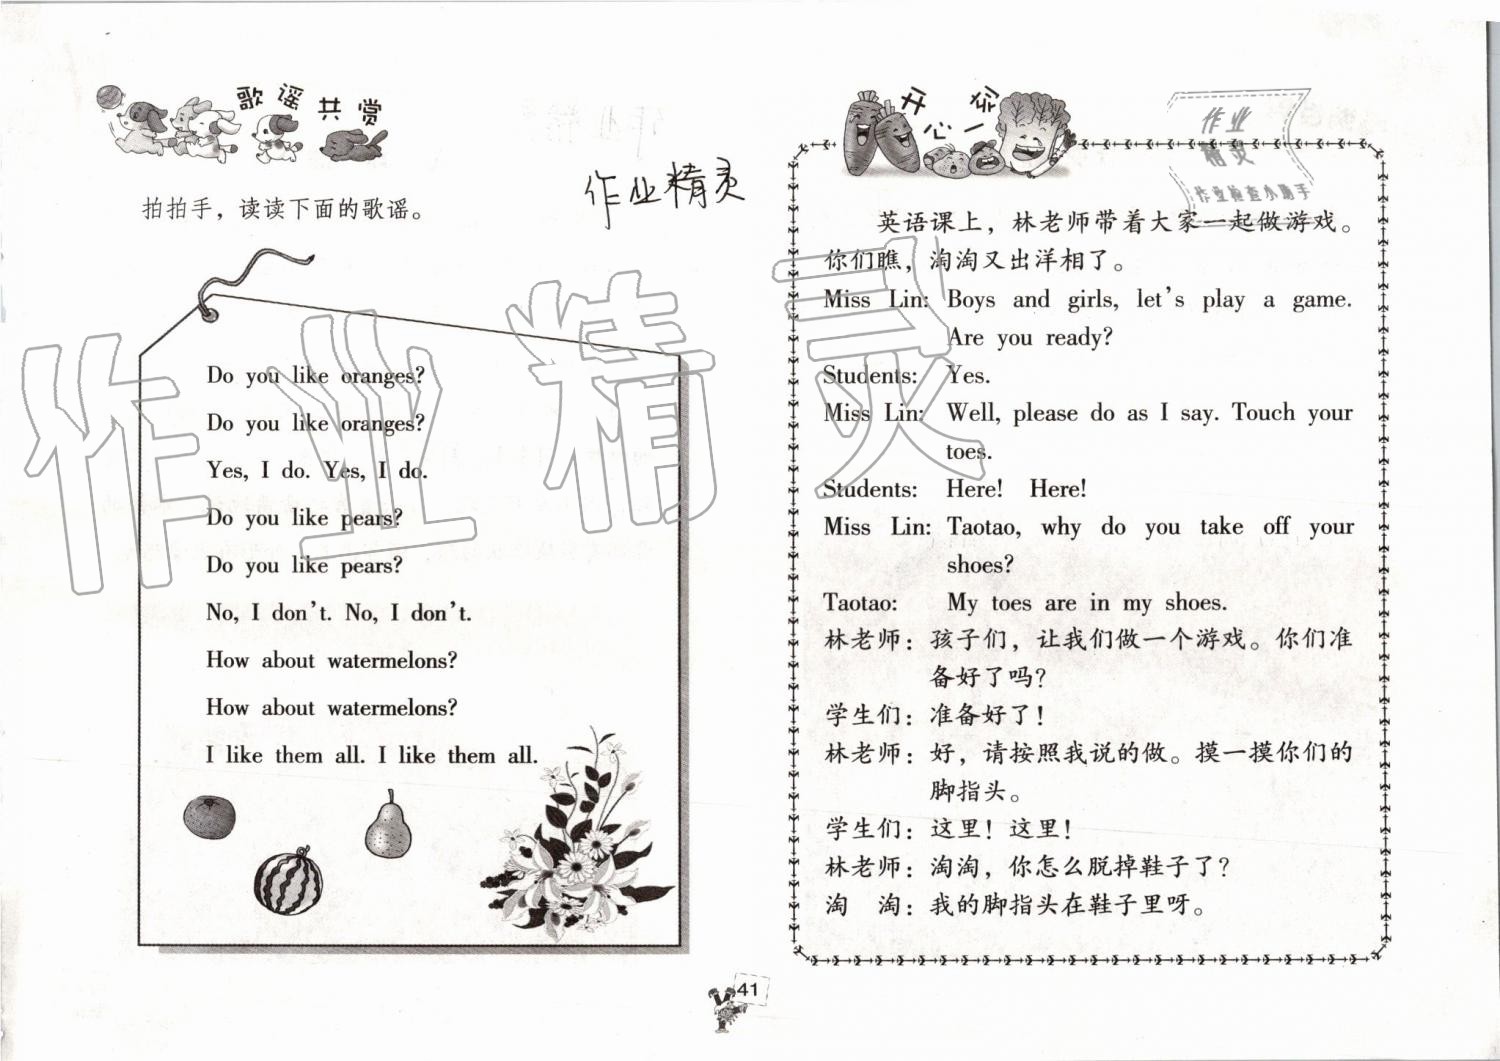 歌谣共赏
拍拍手，读读下面的歌谣。
Do you like oranges?
Do you like oranges?
Yes, I do. Yes, I do.
Do you like pears?
Do you like pears?
No, I don't. No, I don't.
How about watermelons?
How about watermelons?
I like them all. I like them all.
作业精灵
作业精灵
开心一夜
作业
精灵
作业检查小助手
英语课上，林老师带着大家一起做游戏。
你们瞧，淘淘又出洋相了。
Miss Lin: Boys and girls, let's play a game.
Are you ready?
Students: Yes.
Miss Lin: Well, please do as I say. Touch your
toes.
Students: Here! Here!
Miss Lin: Taotao, why do you take off your
shoes?
Taotao: My toes are in my shoes.
林老师：孩子们，让我们做一个游戏。你们准
备好了吗？
学生们：准备好了！
林老师：好，请按照我说的做。摸一摸你们的
脚指头。
学生们：这里！这里！
林老师：淘淘，你怎么脱掉鞋子了？
淘　淘：我的脚指头在鞋子里呀。
41